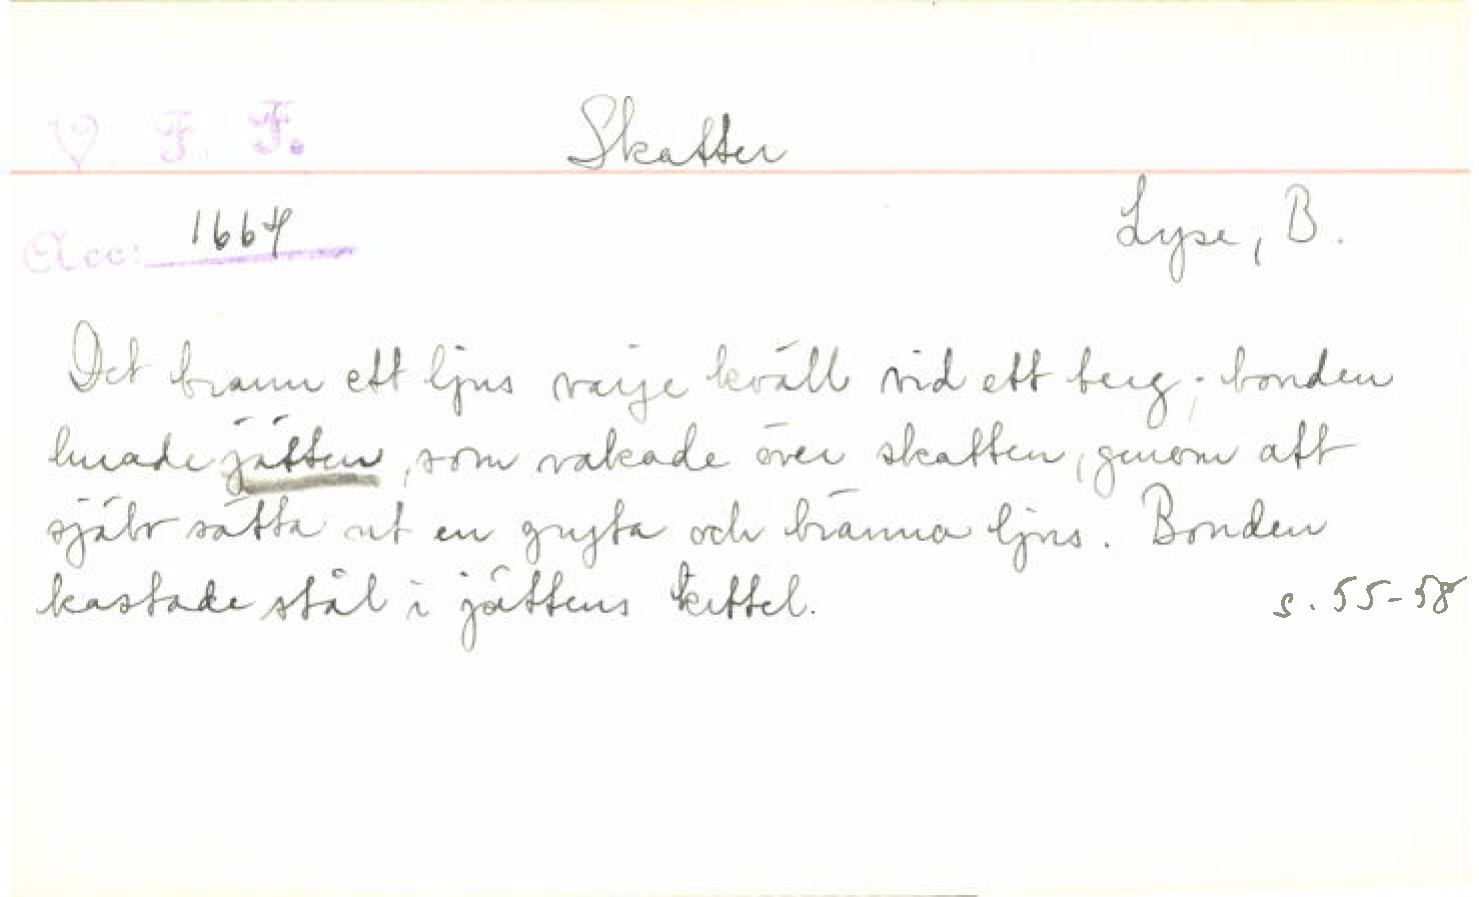 V. F. F.
Skatter
Acc: 1664
Lyse, B.
Det brann ett ljus varje kväll vid ett berg; bonden
lurade jätten, som vakade över skatten, genom att
själv sätta ut en gryta och bränna ljus. Bonden
kastade stål i jättens kittel.
s. 55-58